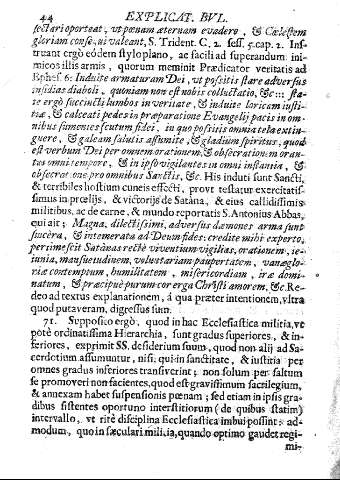 44 EXPLICAT. BVL.
sectari oporteat, vt pœnam æternam evadere, & Cælestem
gloriam conse,ui valeant, S. Trident. C. 2. sess. 5. cap. 2. Ins-
truant ergò eodem stylo piano, ac facili ad superandum ini-
micos illis armis, quorum meminit Prædicator veritatis ad
Ephes. 6. Induite armaturam Dei, vt possitis stare adversus
insidias diaboli, quoniam non est nobis colluctatio, &c: sta-
te ergò succincti lumbos in veritate, & induite loricam iusti-
tiæ, & calceati pedes in præparatione Evangelij pacis in om-
nibus sumentes scutum fidei, in quo possitis omnia tela extin-
guere, & galeam salutis assumite, & gladium spiritus, quod
est verbum Dei per omnem orationem, & obsecrationem oran-
tes omni tempore, & in ipso vigilantes in omni instantia, &
obsecratione pro omnibus Sanctis, &c. His induti sunt Sancti,
& terribiles hostium cuneis effecti, provt testatur exercitatis-
simus in prœlijs, & victorijs de Satàna, & eius callidissimis
militibus, ac de carne, & mundo reportatis S. Antonius Abbas,
qui ait; Magna, dilectissimi, adversus dæmones arma sunt
sincéra, & intemerata ad Deum fides: credite mihi experto,
pertimescit Satànas rectè viventium vigilias, orationem, ie-
iunia, mansuetudinem, voluntariam paupertatem, vanæglo-
riæ contemptum, humilitatem, misericordiam, iræ domi-
natum, & præcipuè purum cor erga Christi amorem, &c. Re-
deo ad textus explanationem, á qua præter intentionem, vltra
quod putaveram, digressus sum.
71. Suppositо ergò, quod in hac Ecclesiastica militia, vt
potè ordinatissima Hierarchia, sunt gradus superiores, & in-
feriores, exprimit SS. desiderium suum, quod non alij ad Sa-
cerdotium assumuntur, nisi, qui in sanctitate, & iustitia per
omnes gradus inferiores transiverint; non solum per saltum
se promoveri non facientes, quod est gravissimum sacrilegium,
& annexam habet suspensionis pœnam; sed etiam in ipsis gra-
dibus sistentes oportuno interstitiorum (de quibus statim)
intervallo, vt ritè disciplina Ecclesiastica imbui possint: ad-
modum, quo in sæculari militia, quando optimo gaudet regi-
mi-